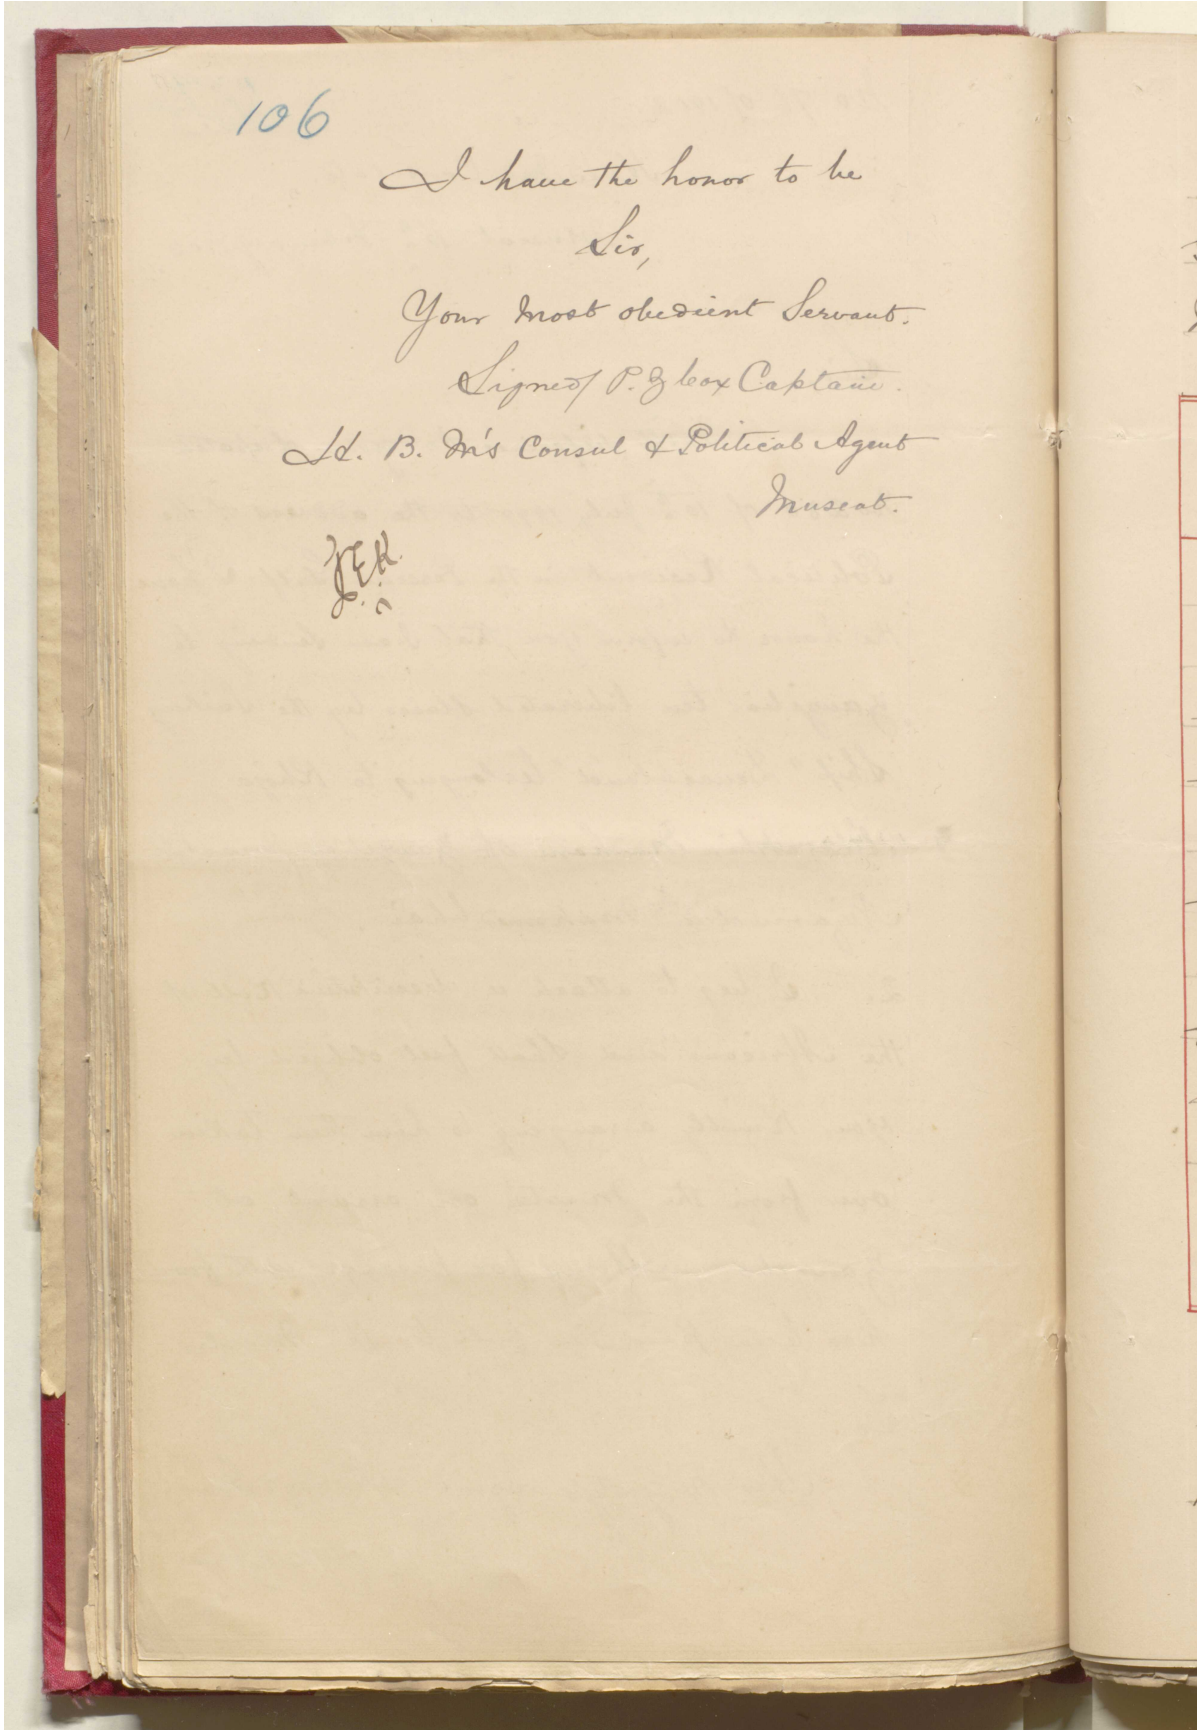 106
I have the honor to be
Sir,
Your most obedient Servant.
Signed/ P. Z Cox Captain.
H. B. M's Consul & Political Agent
Muscat.